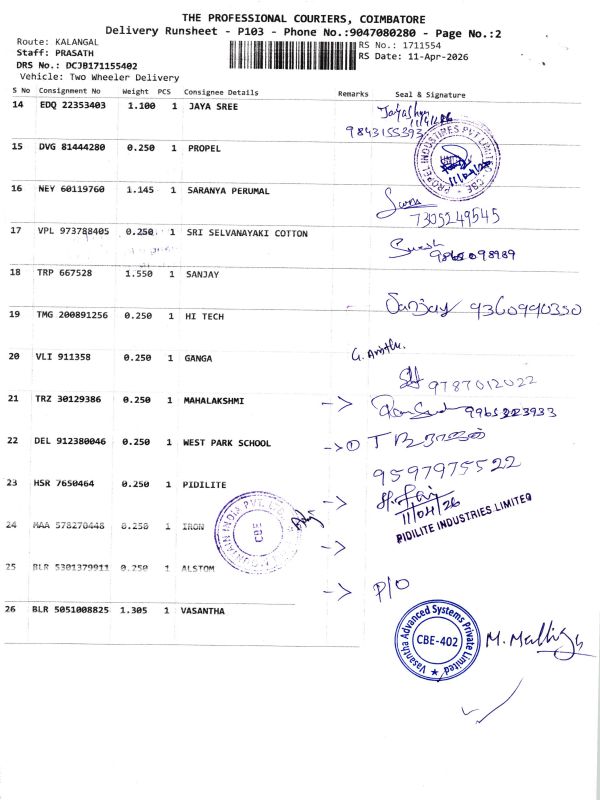 THE PROFESSIONAL COURIERS, COIMBATORE
Delivery Runsheet - P103 - Phone No.:9047080280 - Page No.:2
Route: KALANGAL
Staff: PRASATH
DRS No.: DCJB171155402
Vehicle: Two Wheeler Delivery
RS No.: 1711554
RS Date: 11-Apr-2026
S No Consignment No Weight PCS Consignee Details Remarks Seal & Signature
14 EDQ 22353403 1.100 1 JAYA SREE
11/4/26
9843155393
15 DVG 81444280 0.250 1 PROPEL
PROPEL INDUSTRIES PVT LIMITED CBE
16 NEY 60119760 1.145 1 SARANYA PERUMAL
7305249545
17 VPL 973788405 0.250 1 SRI SELVANAYAKI COTTON
18 TRP 667528 1.550 1 SANJAY
Sanjay 9360990350
19 TMG 200891256 0.250 1 HI TECH
20 VLI 911358 0.250 1 GANGA
9787012022
21 TRZ 30129386 0.250 1 MAHALAKSHMI ->
22 DEL 912380046 0.250 1 WEST PARK SCHOOL -> ①
9597975522
23 HSR 7650464 0.250 1 PIDILITE ->
11/04/26
PIDILITE INDUSTRIES LIMITED
24 MAA 578270448 0.250 1 IRON ->
25 BLR 5301379911 0.250 1 ALSTOM -> P/O
26 BLR 5051008825 1.305 1 VASANTHA
Vasantha Advanced Systems Private Limited
CBE-402